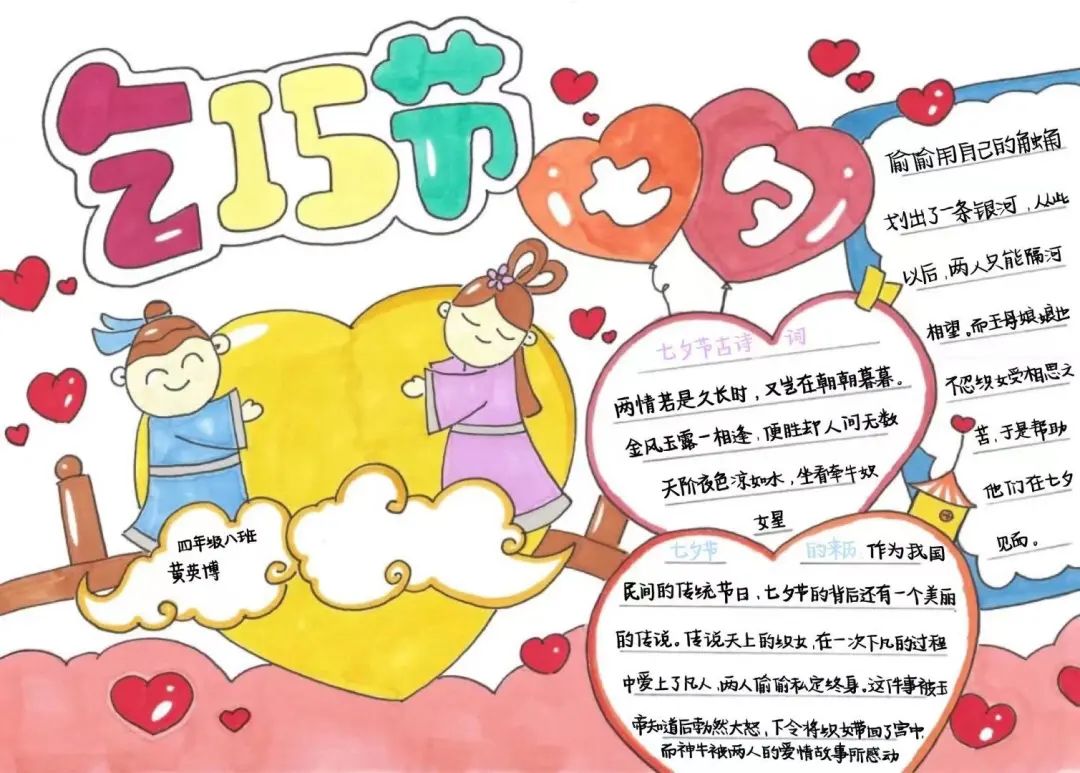 乞巧节
七夕
四年级八班
黄英博
七夕节古诗词
两情若是久长时，又岂在朝朝暮暮。
金风玉露一相逢，便胜却人间无数
天阶夜色凉如水，坐看牵牛织
女星
七夕节的来历 作为我国
民间的传统节日，七夕节的背后还有一个美丽
的传说。传说天上的织女，在一次下凡的过程
中爱上了凡人，两人偷偷私定终身。这件事被玉
帝知道后勃然大怒，下令将织女带回了宫中
而神牛被两人的爱情故事所感动
偷偷用自己的触角
划出了一条银河，从此
以后，两人只能隔河
相望。而王母娘娘也
不忍织女受相思之
苦，于是帮助
他们在七夕
见面。